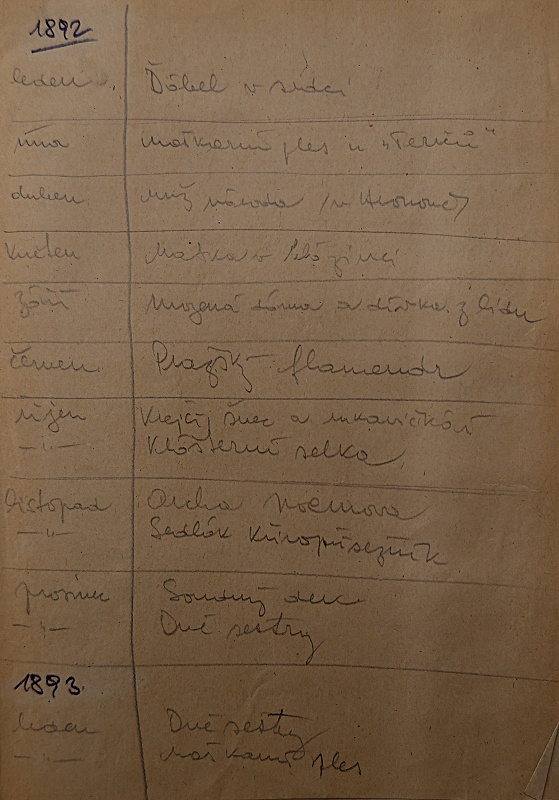 1892
leden Ďábel v srdci
únor Maškarní ples u "Teričů"
duben Muž národa (v Hronově)
květen Matka v blázinci
září Urozená dáma a dívka z lidu
červen Pražský flamendr
říjen Krejčí, švec a rukavičkář
—"— Klášterní selka
listopad Archa Noemova
—"— Sedlák křivopřísežník
prosinec Soudný den
—"— Dvě sestry
1893
leden Dvě sestry
—"— Maškarní ples